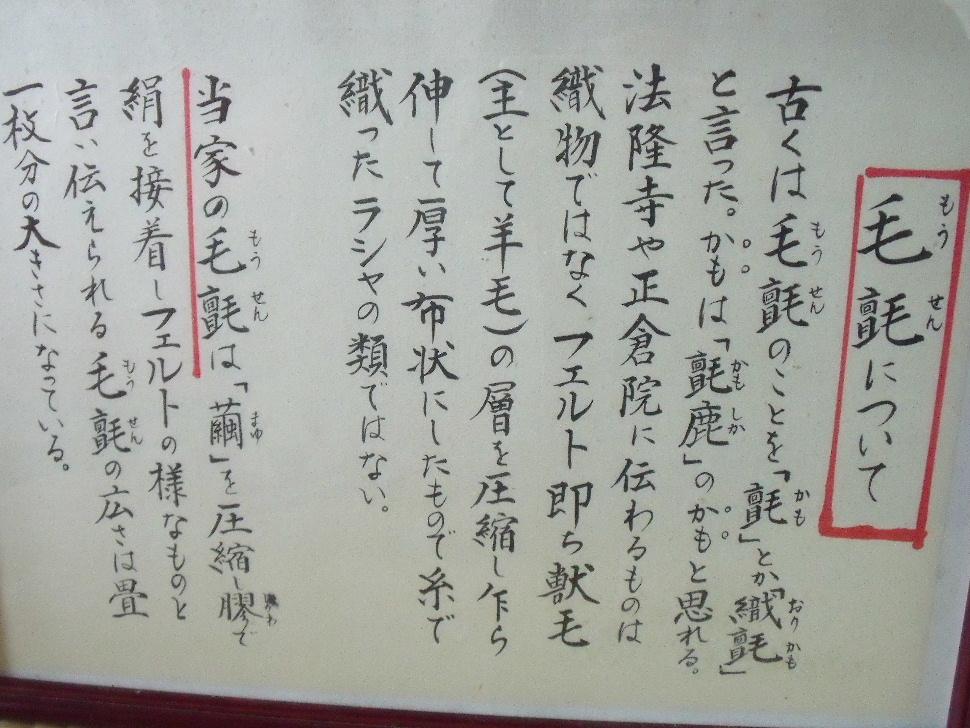 毛氈について
古くは毛氈のことを「氈」とか「織氈」
と言った。かもは「氈鹿」のかもと思れる。
法隆寺や正倉院に伝わるものは
織物ではなくフェルト即ち獣毛
(主として羊毛)の層を圧縮し乍ら
伸して厚い布状にしたもので糸で
織ったラシャの類ではない。
当家の毛氈は「繭」を圧縮し膠で
絹を接着しフェルトの様なものと
言い伝えられる毛氈の広さは畳
一枚分の大きさになっている。